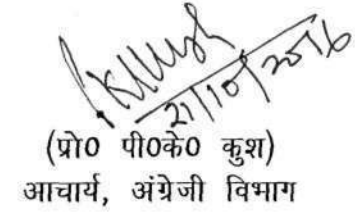 21/10/2016
(प्रो0 पी0के0 कुश)
आचार्य, अंग्रेजी विभाग